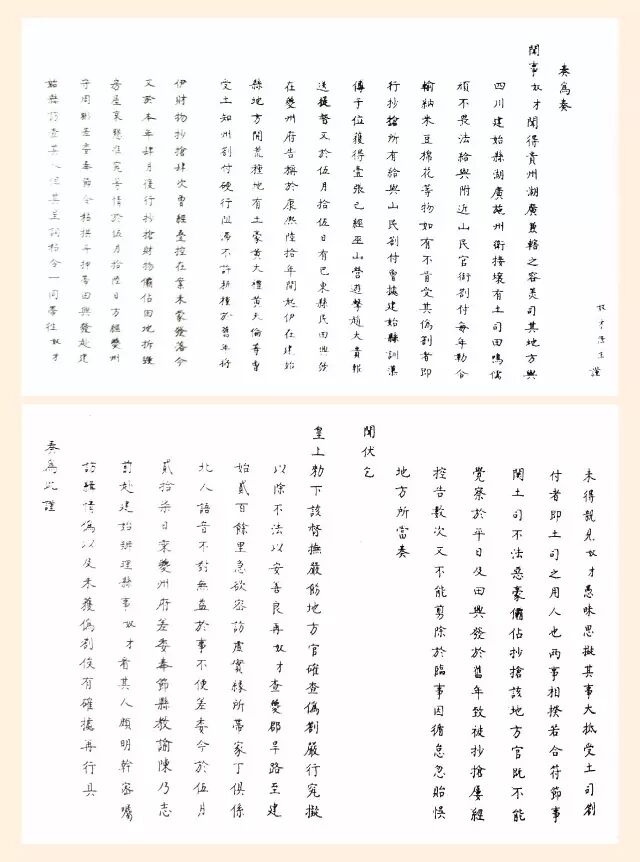 奏為奏
聞事奴才聞得貴州湖廣兼轄之容美司其地方與
四川建始縣湖廣施州衛接壤有土司田鳴儒
頑不畏法給與附近山民官銜劄付每年勒令
輸納米豆棉花等物如有不肯受其偽劄者即
行抄搶所有給與山民劄付曾據建始縣訓漢
傳于位獲得壹張已經巫山營遊擊趙大貴報
送提督又於伍月拾伍日有巴東縣民田興發
在夔州府告稱於康熙陸拾年間起伊在建始
縣地方開荒種地有土豪黃大禮黃天倫等曾
受土知州劄付硬行阻滯不許耕種於舊年將
伊財物抄搶肆次曾經叠控在案未蒙發落今
又於本年肆月復行抄搶財物僱佔田地折毀
房屋哀懇准究等情於伍月拾陸日方經夔州
守周彬差委奉節令拈拱斗押帶田興發赴建
始縣訪查其人但其呈詞拈令一同帶往奴才
未得親見奴才愚昧思擬其事大抵受土司劄
付者即土司之用人也兩事相揆若合符節事
關土司不法惡豪僱佔抄搶該地方官既不能
覺察於平日及田興發於舊年致被抄搶屢經
控告數次又不能剪除於臨事因循怠忽貽悞
地方所當奏
聞伏乞
皇上勅下該督撫嚴飭地方官確查偽劄嚴行究擬
以除不法以安善良再奴才查夔郡旱路至建
始貳百餘里急欲容訪虛實緣所帶家丁俱係
北人語音不對無益於事不便差委今於伍月
貳拾柒日稟夔州府差委奉節縣教諭陳乃志
前赴建始辦理縣事奴才看其人頗明幹密囑
訪聽情偽以及未獲偽劄俟有確據再行具
奏為此謹